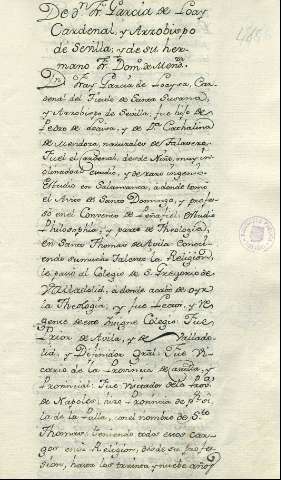 De Dn. Fr. García de Loaysa
Cardenal, y Arzobispo
de Sevilla, y de su her-
mano Fr. Domo. de Menda.
Dn. Fray García de Loaysa, Car-
denal del Titulo de Santa Susana,
y Arzobispo de Sevilla, fue hijo de
Pedro de Loaysa, y de Da. Cathalina
de Mendoza, naturales de Talavera.
Fue el Cardenal, desde Niño, muy in-
clinado al estudio, y de raro ingenio.
Estudio en Salamanca, a donde tomo
el Avito de Santo Domingo, y profe-
so en el Convento de Peñafiel. Studio
Philosophia, y parte de Theologia,
en Santo Thomas de Avila. Conoci-
endo su mucho Talento la Religion,
le paso al Colegio de S. Gregorio de
Valladolid, a donde acabo de oyr
la Theologia, y fue Lector, y Re-
gente de este insigne Colegio. Fue
Prior de Avila, y de Vallado-
lid, y Difinidor Gral. Fue Vi-
cario de la Provincia de
Provincial. Fue Visitador de la Prova.
de Napoles: hizo Provincia de por si
la de la Pulla, con el nombre de Sto.
Thomas. Teniendo todos estos car-
gos en su Religion, desde su profe-
sion, hasta los treinta, y nueve años